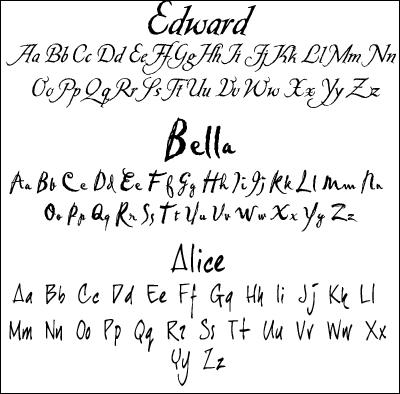 Edward
Aa Bb Cc Dd Ee Ff Gg Hh Ii Jj Kk Ll Mm Nn
Oo Pp Qq Rr Ss Tt Uu Vv Ww Xx Yy Zz
Bella
Aa Bb Cc Dd Ee Ff Gg Hh Ii Jj Kk Ll Mm Nn
Oo Pp Qq Rr Ss Tt Uu Vv Ww Xx Yy Zz
Alice
Aa Bb Cc Dd Ee Ff Gg Hh Ii Jj Kk Ll
Mm Nn Oo Pp Qq Rr Ss Tt Uu Vv Ww Xx
Yy Zz